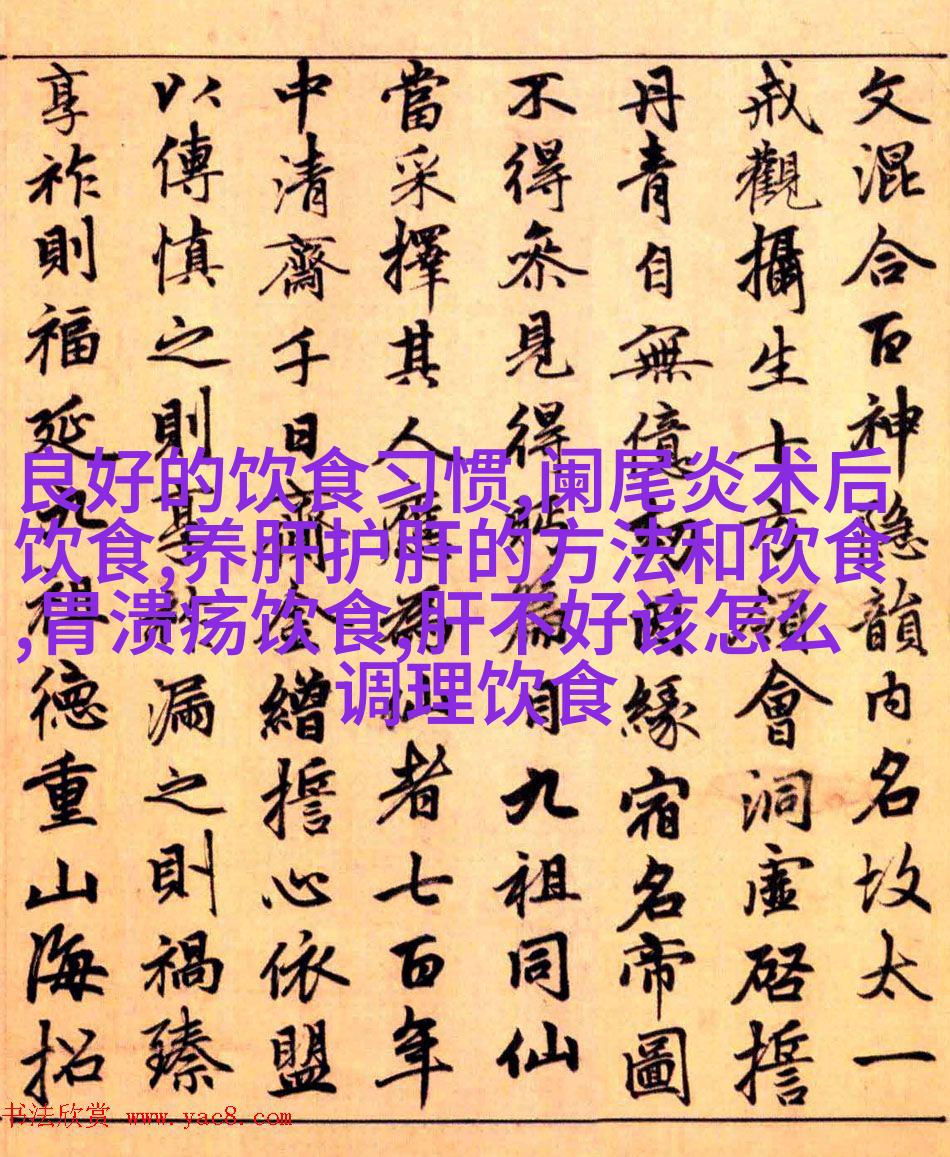 文混合百神隱韻内名太一
戒觀攝生十方會洞虛啓誓
丹青自無億劫因緣宿名帝圖
不得叅見得篇目九祖同仙
當采擇其人應為仙者七百年
中清齋千日齎金繒誓心依盟
以傳慎之則漏之則禍臻
享祚則福延九祖德重山海招
良好的饮食习惯,阑尾炎术后
饮食,养肝护肝的方法和饮食
,胃溃疡饮食,肝不好该怎么
调理饮食
书法欣赏 www.yac8.com